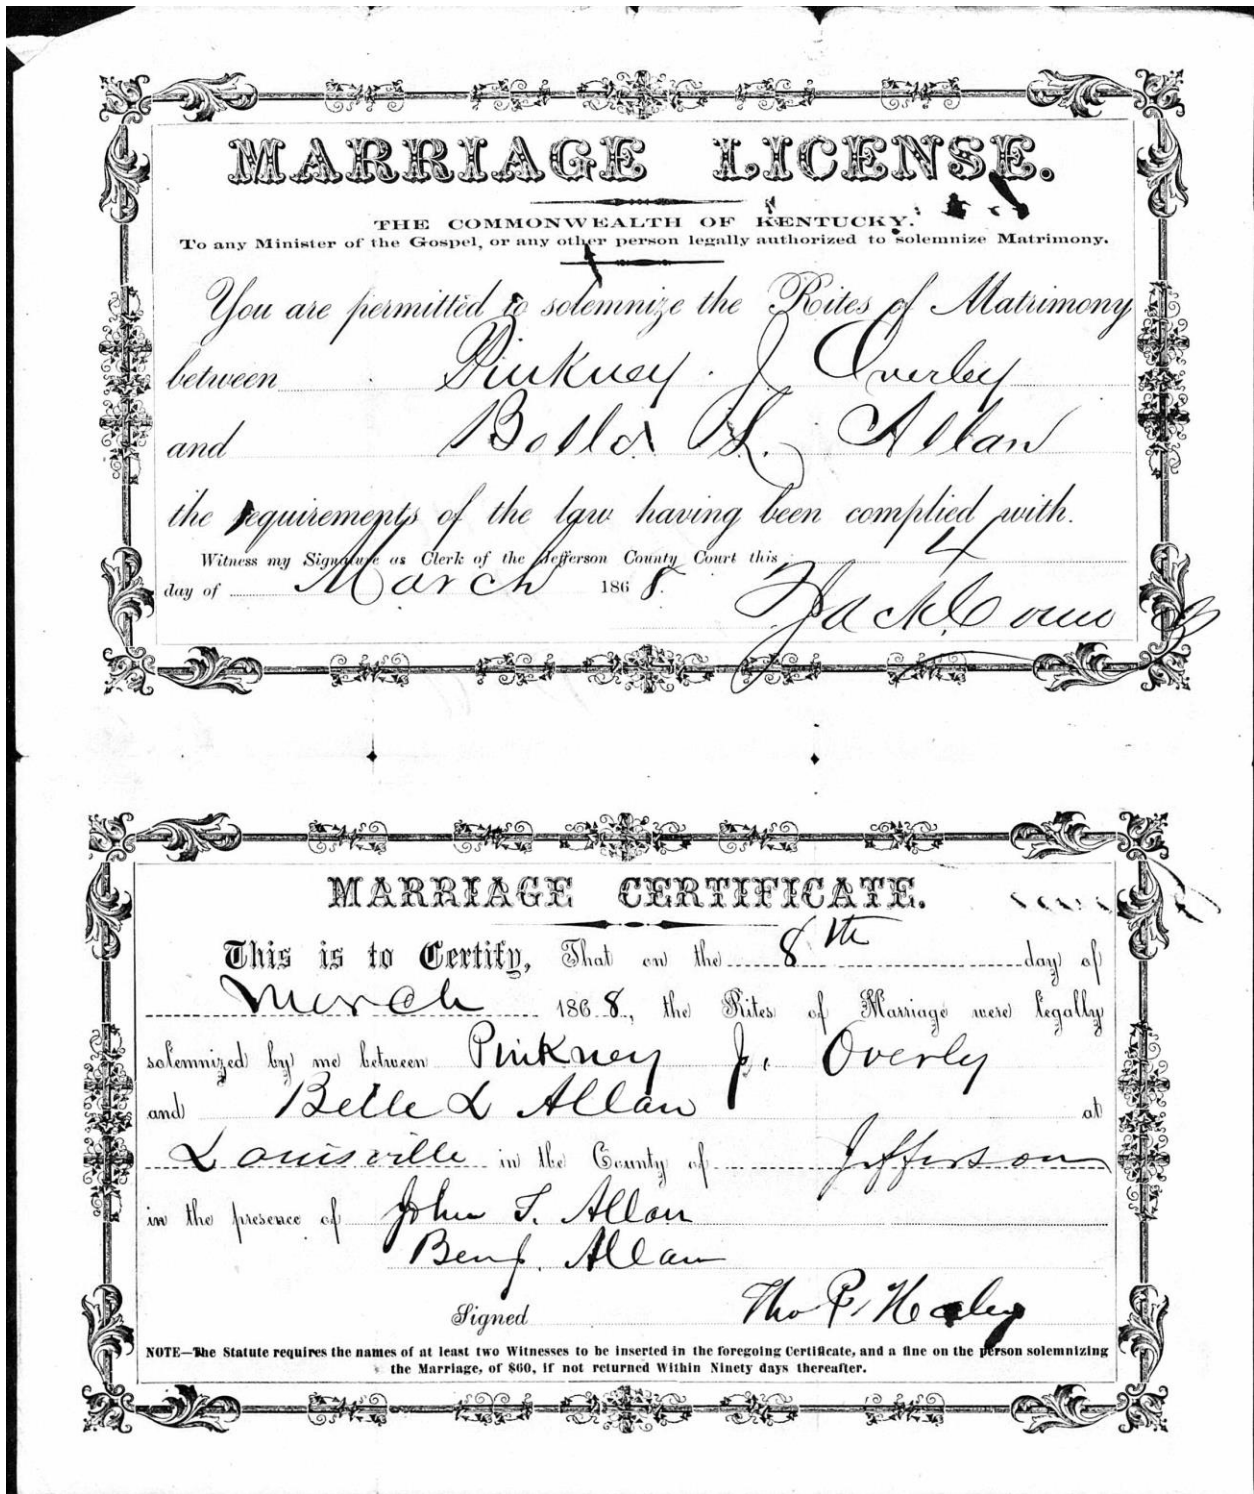 MARRIAGE LICENSE.
THE COMMONWEALTH OF KENTUCKY.
To any Minister of the Gospel, or any other person legally authorized to solemnize Matrimony.
You are permitted to solemnize the Rites of Matrimony
between Pinkney J Overly
and Bella L. Allan
the requirements of the law having been complied with.
Witness my Signature as Clerk of the Jefferson County Court this 4
day of March 1868.
MARRIAGE CERTIFICATE.
This is to Certify, That on the 8th day of
March 1868, the Rites of Marriage were legally
solemnized by me between Pinkney J. Overly
and Belle L Allan at
Louisville in the County of Jefferson
in the presence of John T. Allan
Benj. Allan
Signed Tho P. Healey
NOTE—The Statute requires the names of at least two Witnesses to be inserted in the foregoing Certificate, and a fine on the person solemnizing
the Marriage, of $60, if not returned Within Ninety days thereafter.